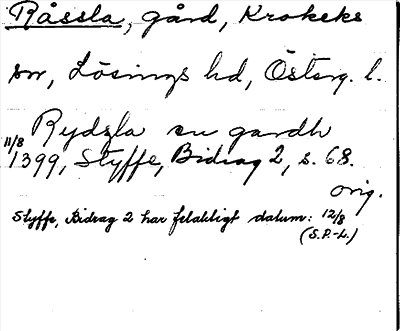 Råssla, gård, Krokeks
sn, Lösings hd, Österg. l.
Rydzla en gardh
11/8 1399, Styffe, Bidrag 2, s. 68.
orig.
Styffe, Bidrag 2 har felaktigt datum: 12/8
(S.P.-L.)